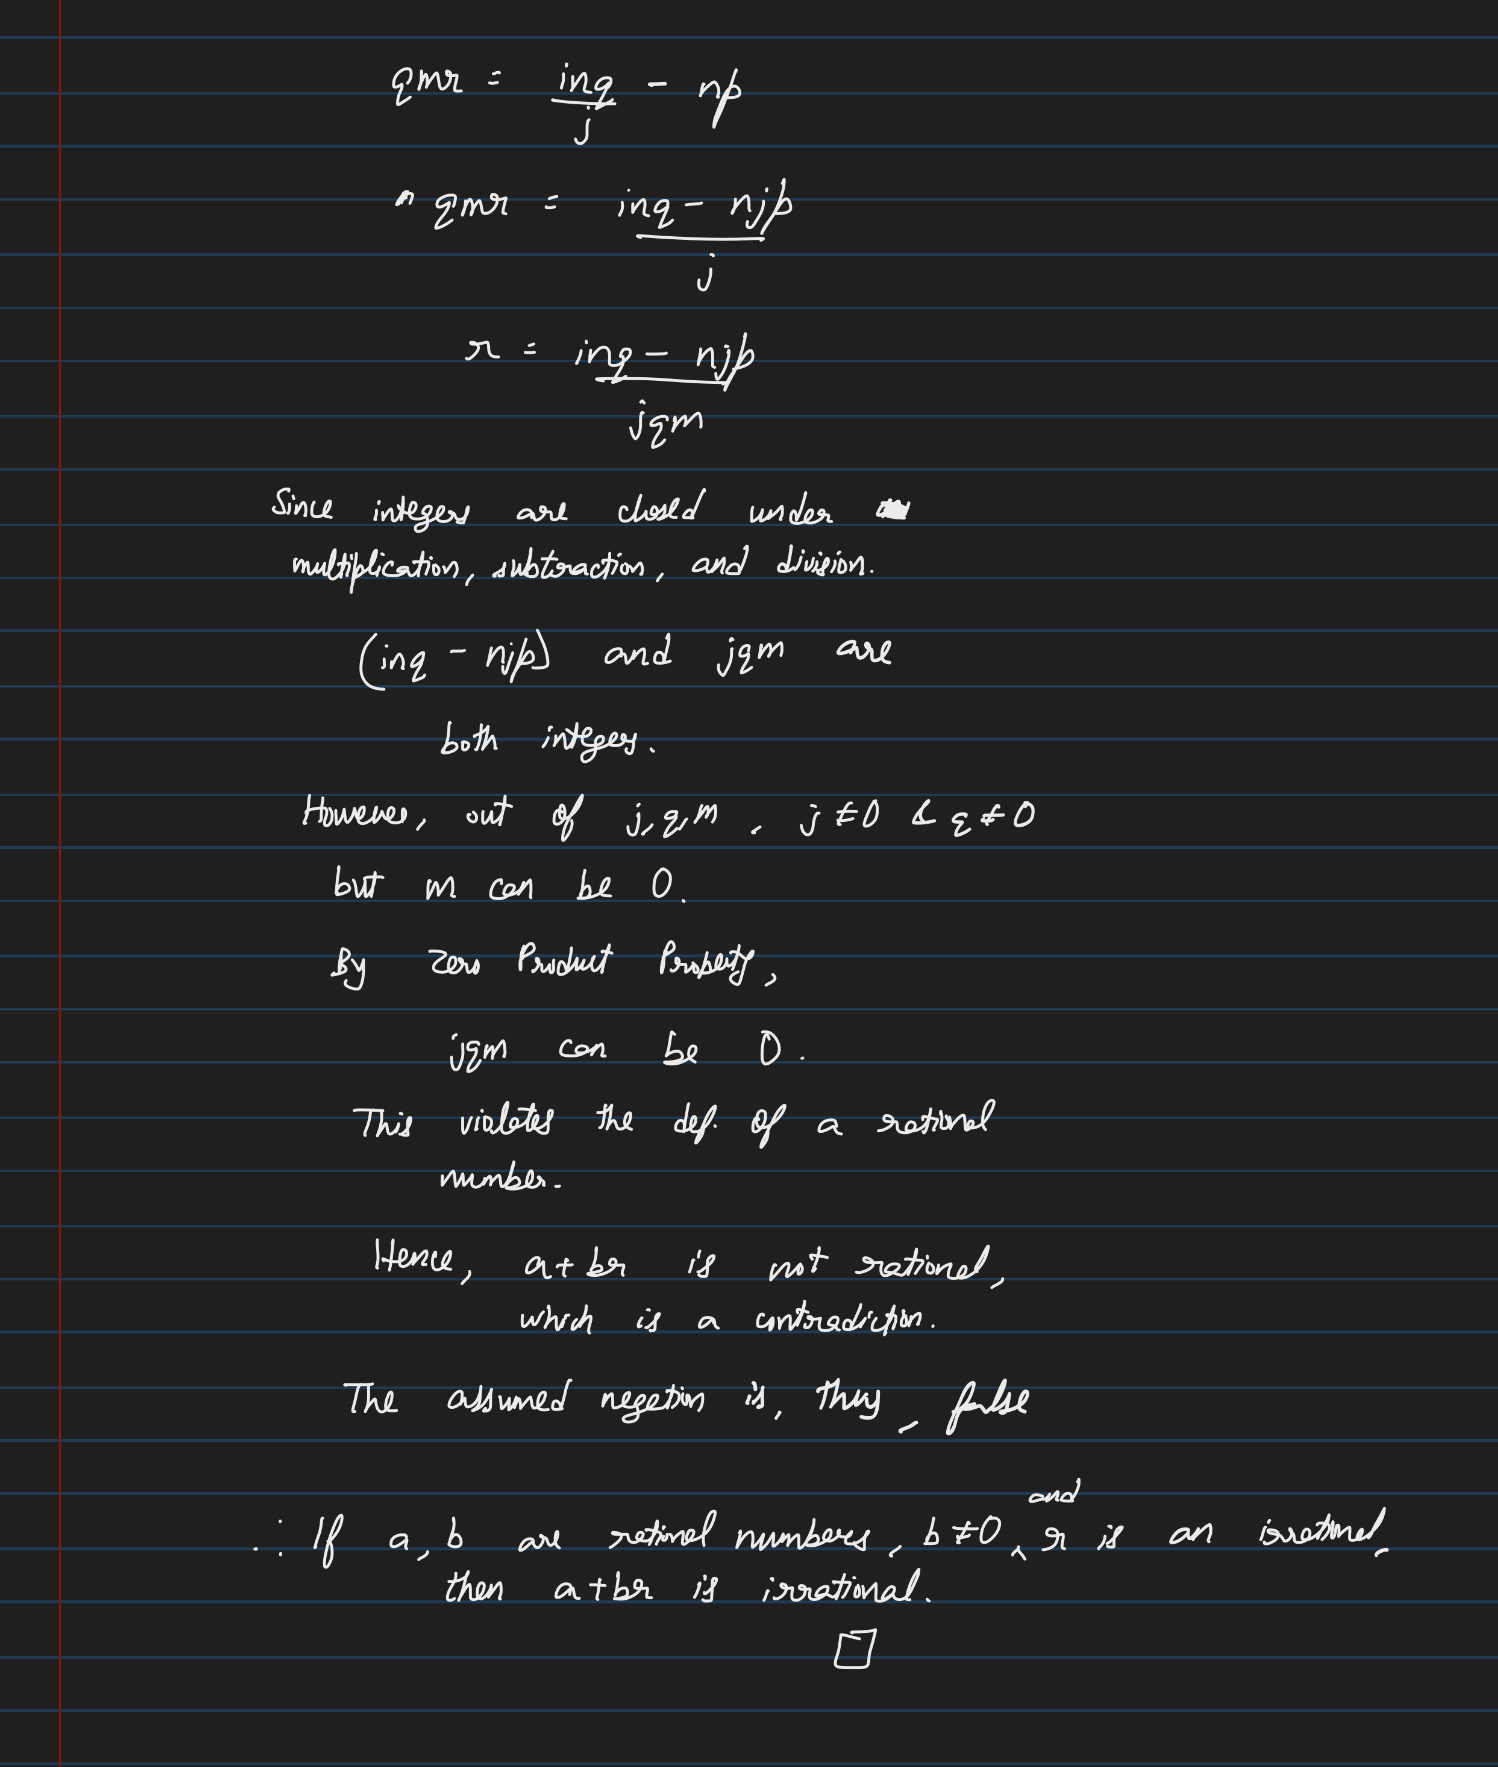 qmr = inq/j - np
qmr = inq - njp / j
r = inq - njp / jqm
Since integers are closed under
multiplication, subtraction, and division.
(inq - njp) and jqm are
both integers.
However, out of j, q, m, j ≠ 0 & q ≠ 0
but m can be 0.
By Zero Product Property,
jqm can be 0.
This violates the def. of a rational
number.
Hence, a + br is not rational,
which is a contradiction.
The assumed negation is, thus, false
∴ If a, b are rational numbers, b ≠ 0, and r is an irrational,
then a + br is irrational.
□